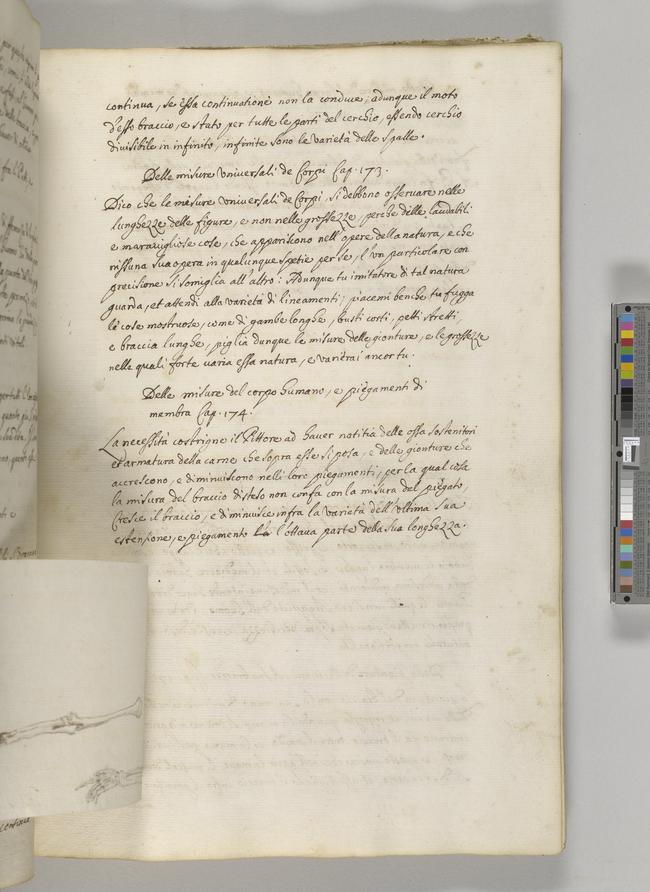 continua, se essa continuatione non la conduce; adunque il moto
d'esso braccio, e stato per tutte le parti del cerchio, essendo cerchio
divisibile in infinito, infinite sono le varietà delle spalle.
Delle misure Universali de Corpi Cap. 173.
Dico che le misure universali de Corpi, si debbono osservare nelle
lunghezze delle figure, e non nelle grossezze, perche delle laudabili
e maravigliose cose, che appariscono nell'opere della natura, e che
nissuna sua opera in qualunque spetie per se, l'un particolare con
precisione si somiglia all'altro: Adunque tu imitatore di tal natura
guarda, et attendi alla varietà di lineamenti; piacemi benche tu fugga
le cose mostruose, come di gambe longhe, busti corti, petti stretti,
e braccia lunghe, piglia dunque le misure delle gionture, e le grossezze
nelle quali forte varia essa natura, e varierai ancor tu.
Delle misure del corpo humano, e piegamenti di
membra Cap. 174.
La necessità costrigne il Pittore ad haver notitia delle ossa sostenitori
et armatura della carne che sopra esse si posa, e delle gionture che
accrescono, e diminuiscono nelli loro piegamenti; per la qual cosa
la misura del braccio disteso non confa con la misura del piegato,
Cresce il braccio, e diminuisce infra la varietà dell'ultima sua
estensione, e piegamento l'ottava parte della sua longhezza.